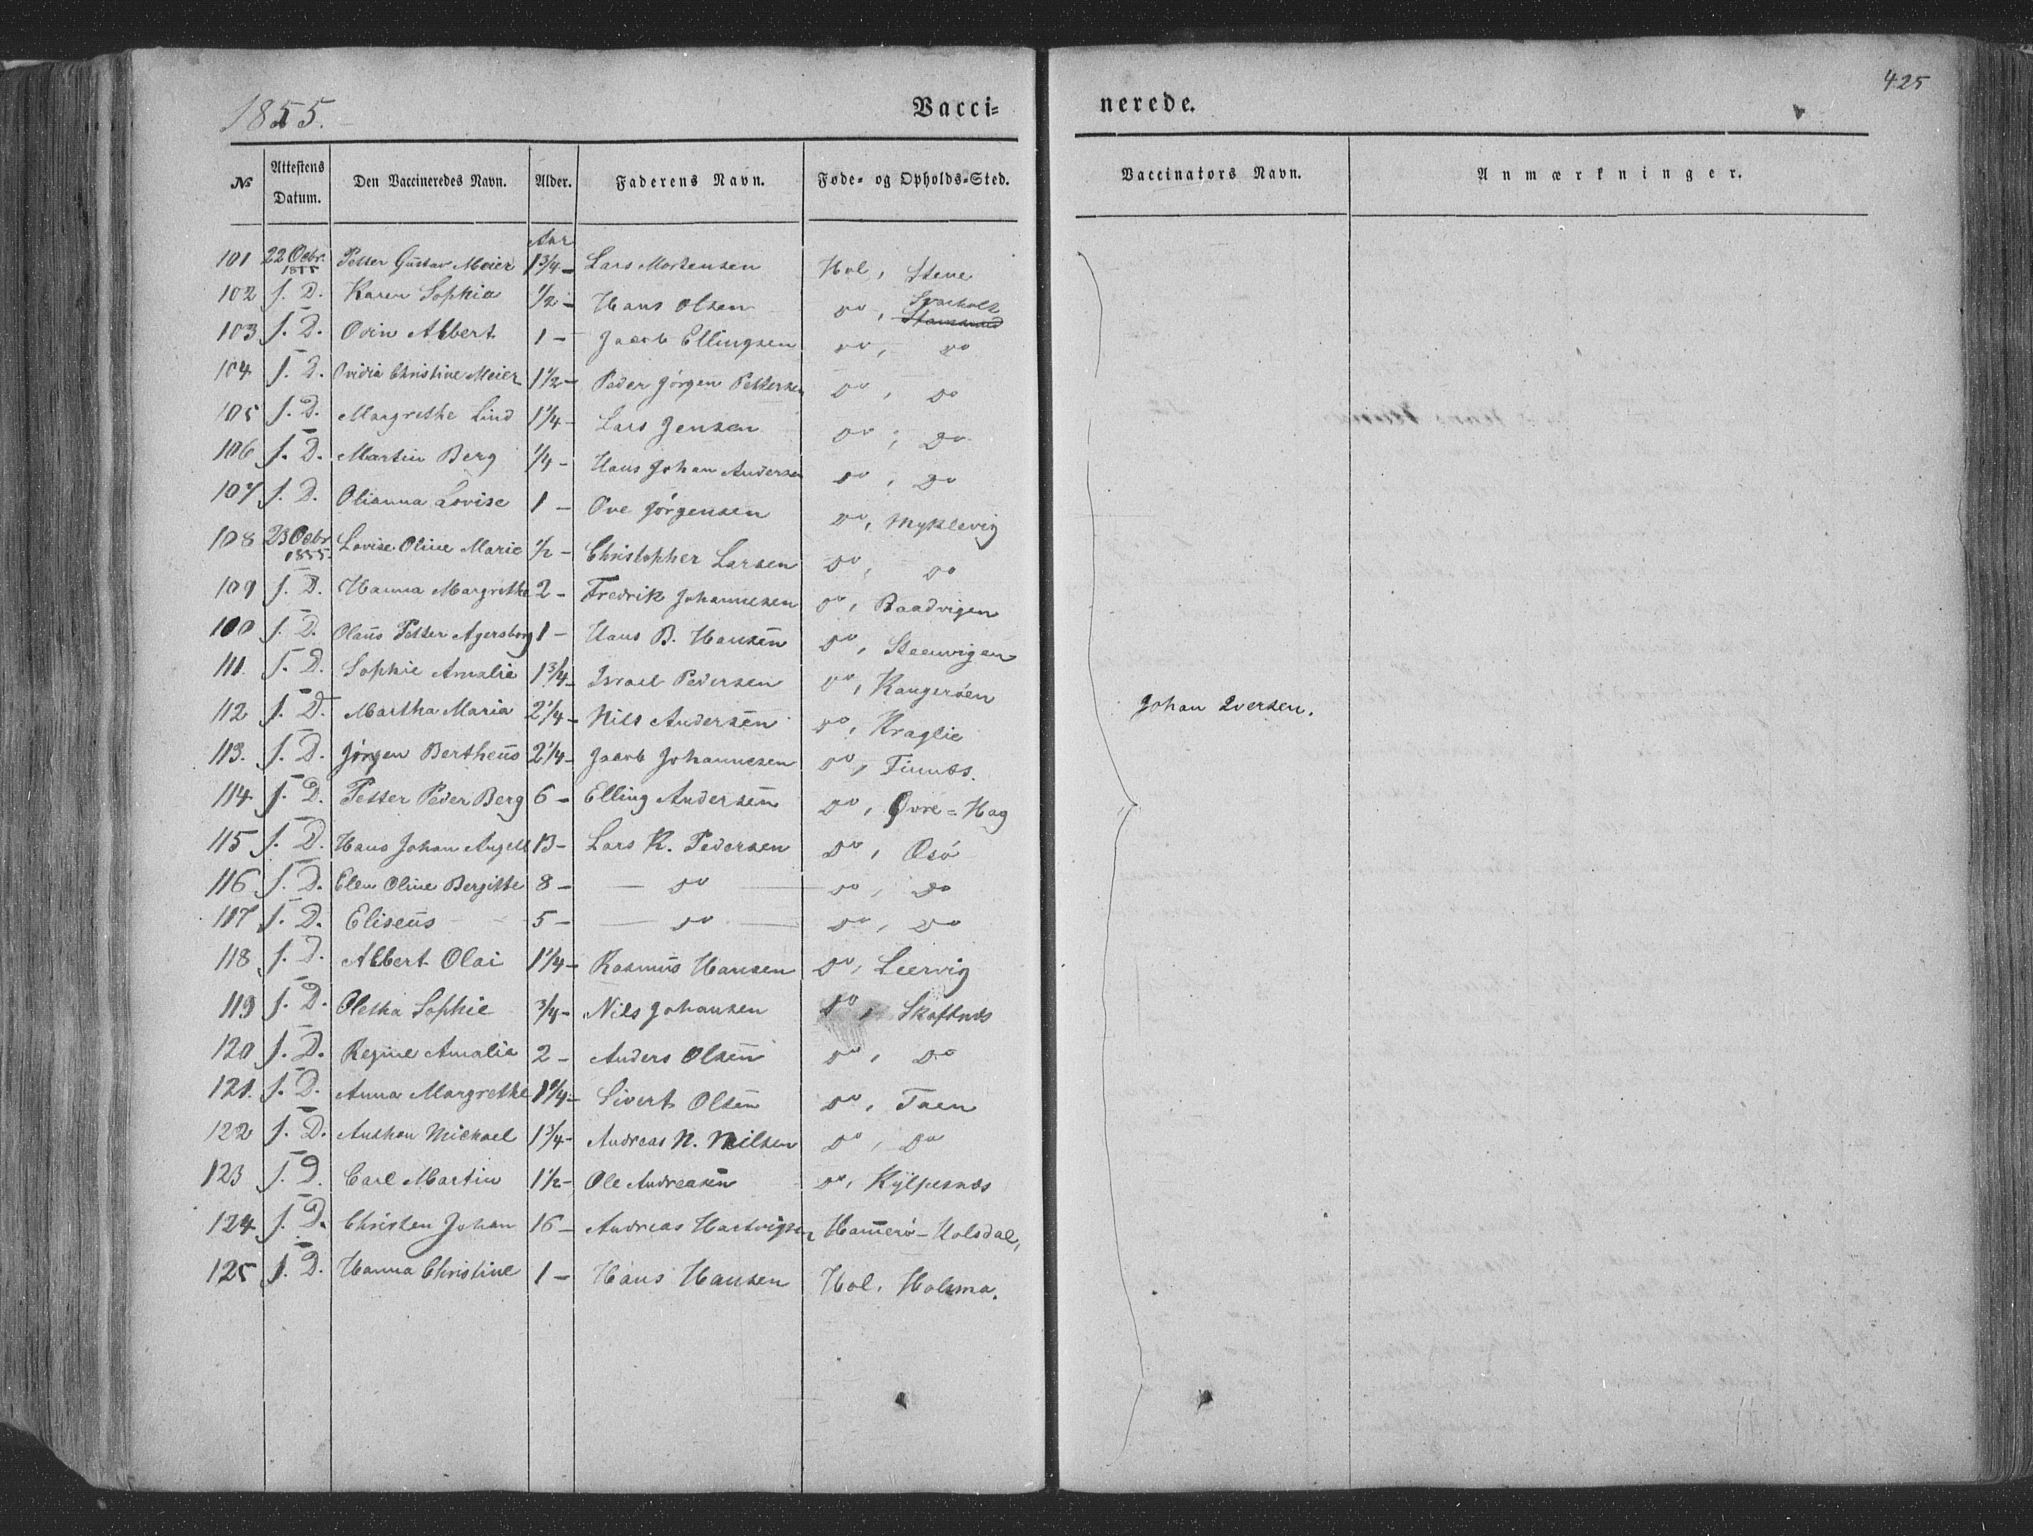 1855.
Vacci=
nerede.
425
No
Attestens Datum.
Den Vaccineredes Navn.
Alder.
Faderens Navn.
Føde- og Opholds-Sted.
Vaccinators Navn.
Anmærkninger.
Aar
101 22 Octbr. 1855 Petter Gustav Meier 1 3/4 - Lars Mortensen Hol, Stene
102 s. D. Karen Sophia 1/2 - Hans Olsen Do, Svarholt
103 s. D. Odin Albert 1 - Jacob Ellingsen Do, Do
104 s. D. Ovidia Christine Meier 1 1/2 - Peder Jørgen Pettersen Do, Do
105 s. D. Margrethe Lind 1 1/4 - Lars Jensen Do, Do
106 s. D. Martin Berg 1/4 - Hans Johan Andersen Do, Do
107 s. D. Olianna Lovise 1 - Ove Jørgensen Do, Myklevig
108 23 Octbr 1855. Lovise Oline Marie 1/2 - Christopher Larsen Do, Do
109 s. D. Hanna Margrethe 2 - Fredrik Johannesen Do, Baadvigen
100 s. D. Olaus Petter Agersborg 1 - Hans B. Hansen Do, Steenvigen
111. s. D. Sophie Amalie 1 3/4 - Israel Pedersen Do, Kangerøen
112 s. D. Martha Maria 2 1/4 - Nils Andersen Do, Kraglie
113. s. D. Jørgen Bertheus 2 1/4 - Jacob Johannesen Do, Finnæs.
114 s. D. Petter Peder Berg 6 - Elling Andersen Do, Øvre=Hag
115 s. D. Hans Johan Angell 13 - Lars K. Pedersen Do, Osø
116 s. D. Elen Oline Bergitte 8 - Do Do, Do
117 s. D. Eliseus 5 - Do Do, Do
118 s. D. Albert Olai 1 1/4 - Rasmus Hansen Do, Leervig
119 s. D. Oletha Sophie 3/4 - Nils Johansen Do, Skaftnæs
120 s. D. Regine Amalia 2 - Anders Olsen Do, Do
121. s. D. Anna Margrethe Sivert Olsen Do, Taen
122 s. D. Anthon Michael 1 3/4 - Andreas N. Nilsen Do, Do
123 s. D. Carl Martin 1 1/2 - Ole Andreasen Do, Kylpesnæs
124 s. D. Christen Johan 16 - Andreas Hartvigsen Hamerø - Holsdal,
125 s. D. Hanna Christine 1 - Hans Hansen Hol, Holsma.
Johan Iversen.